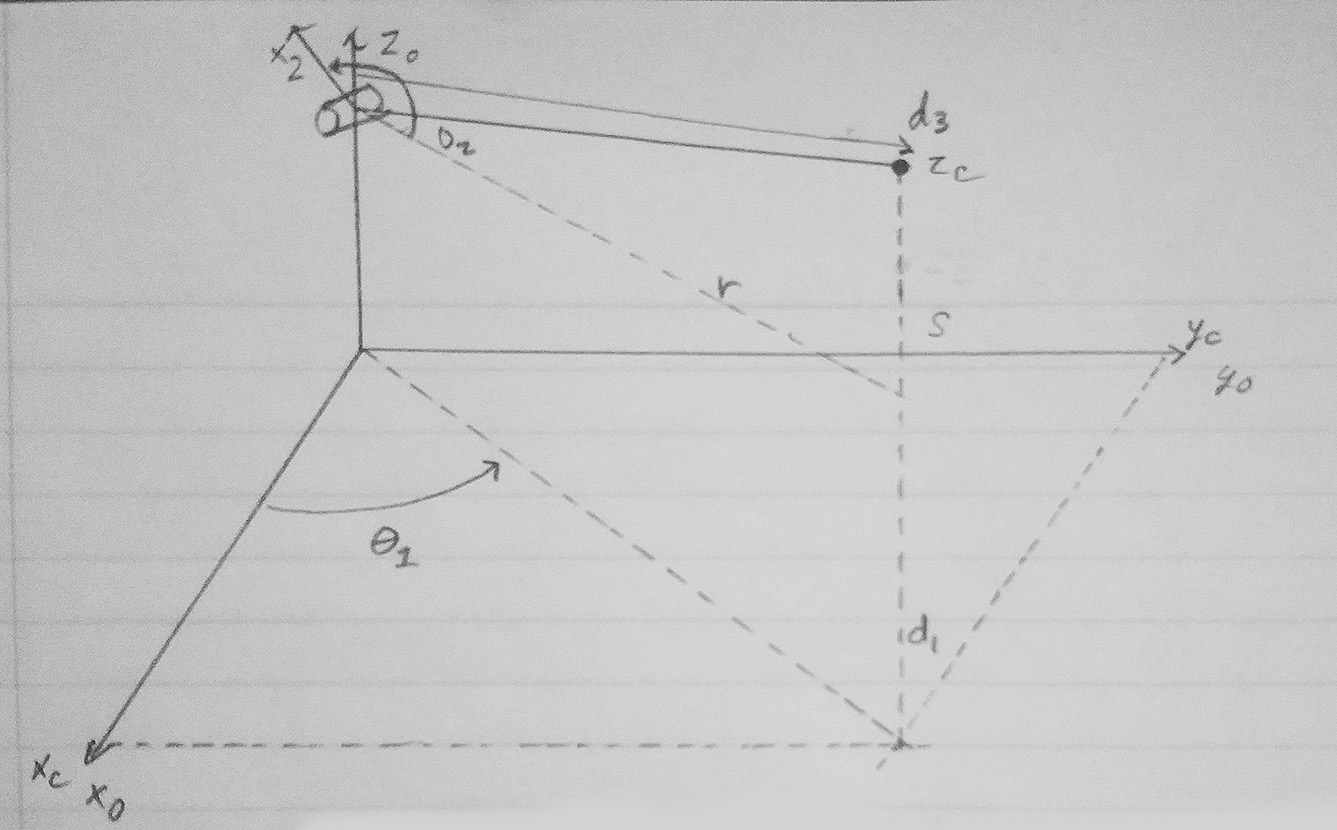 x2
z0
d3
zc
θ2
r
s
yc
y0
θ1
d1
xc
x0